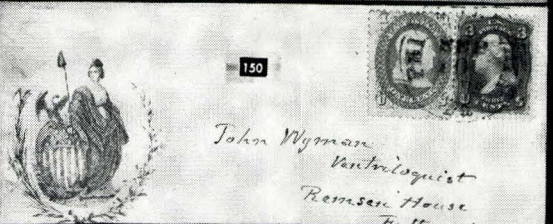 150
John Wyman
Ventriloquist
Remsen House